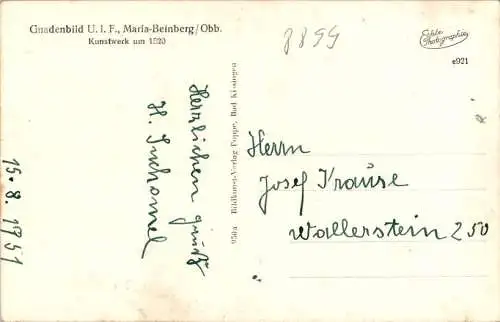 Gnadenbild U. l. F., Maria-Beinberg/Obb.
Kunstwerk um 1520
8899
Echte
Photographie
e921
15.8.1951
Herzlichen gruß
H. Suchomel
950a Bildkunst-Verlag Poppe, Bad Kissingen
Herrn
Josef Krause
Wallerstein 250